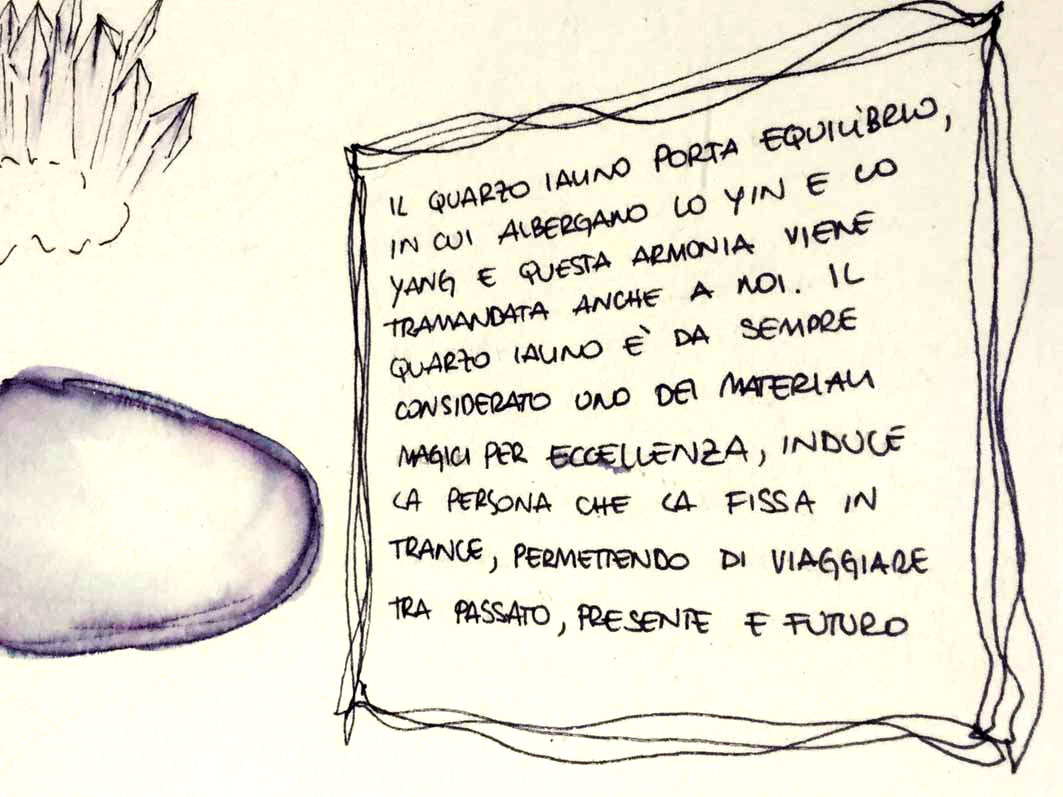 IL QUARZO IALINO PORTA EQUILIBRIO,
IN CUI ALBERGANO LO YIN E LO
YANG E QUESTA ARMONIA VIENE
TRAMANDATA ANCHE A NOI. IL
QUARZO IALINO È DA SEMPRE
CONSIDERATO UNO DEI MATERIALI
MAGICI PER ECCELLENZA, INDUCE
LA PERSONA CHE LA FISSA IN
TRANCE, PERMETTENDO DI VIAGGIARE
TRA PASSATO, PRESENTE E FUTURO